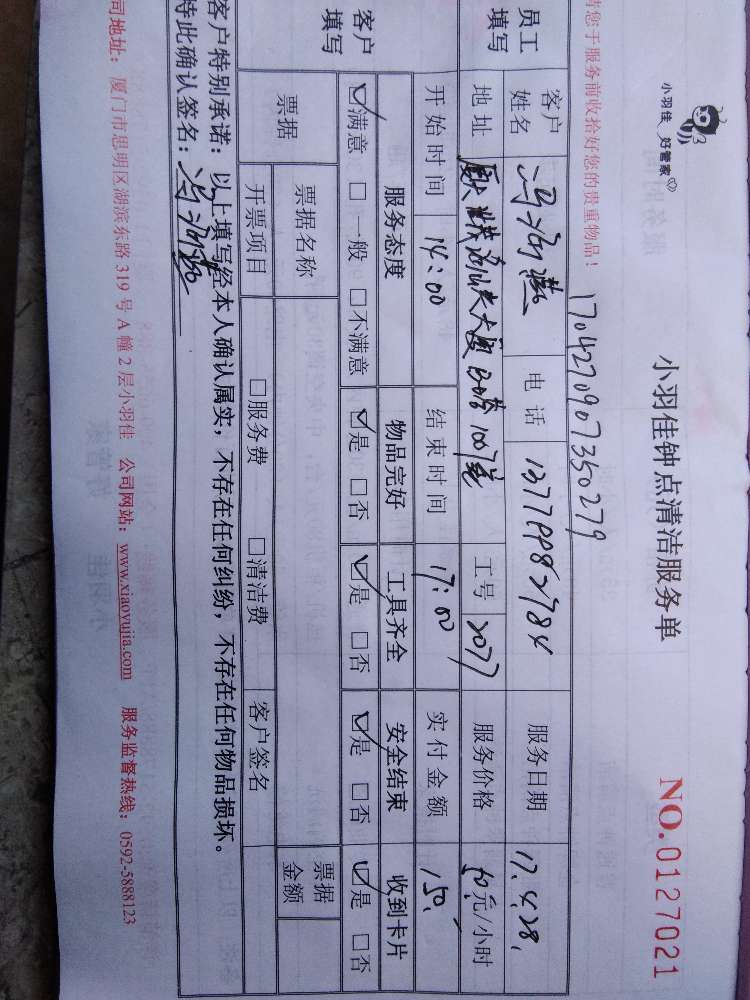 小羽佳 好管家
小羽佳钟点清洁服务单
NO.0127021
请您于服务前收拾好您的贵重物品！
1704270907350279
员工填写
客户姓名 电话 服务日期 17.4.28.
地址 工号 2077 服务价格 50元/小时
开始时间 14:00 结束时间 17:00 实付金额 150.
客户填写
服务态度 物品完好 工具齐全 安全结束 收到卡片
☑满意 □一般 □不满意 ☑是 □否 ☑是 □否 ☑是 □否 ☑是 □否
票据 票据名称 票据金额
开票项目 □服务费 □清洁费 客户签名
客户特别承诺：以上填写经本人确认属实，不存在任何纠纷，不存在任何物品损坏。
特此确认签名：
司地址：厦门市思明区湖滨东路 319 号 A 幢 2 层小羽佳 公司网站：www.xiaoyujia.com 服务监督热线：0592-5888123